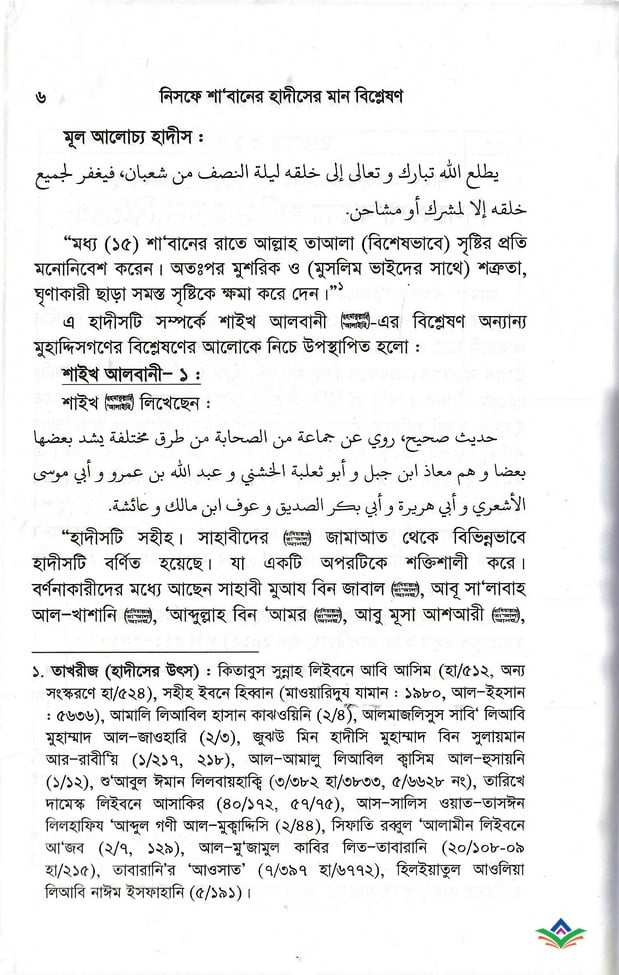 ৬ নিসফে শা‘বানের হাদীসের মান বিশ্লেষণ
মূল আলোচ্য হাদীস :
يطلع الله تبارك و تعالى إلى خلقه ليلة النصف من شعبان، فيغفر لجميع
خلقه إلا لمشرك أو مشاحن.
“মধ্য (১৫) শা‘বানের রাতে আল্লাহ তাআলা (বিশেষভাবে) সৃষ্টির প্রতি
মনোনিবেশ করেন। অতঃপর মুশরিক ও (মুসলিম ভাইদের সাথে) শত্রুতা,
ঘৃণাকারী ছাড়া সমস্ত সৃষ্টিকে ক্ষমা করে দেন।”১
এ হাদীসটি সম্পর্কে শাইখ আলবানী -এর বিশ্লেষণ অন্যান্য
মুহাদ্দিসগণের বিশ্লেষণের আলোকে নিচে উপস্থাপিত হলো :
শাইখ আলবানী– ১ :
শাইখ লিখেছেন :
حديث صحيح، روي عن جماعة من الصحابة من طرق مختلفة يشد بعضها
بعضا و هم معاذ ابن جبل و أبو ثعلبة الخشني و عبد الله بن عمرو و أبي موسى
الأشعري و أبي هريرة و أبي بكر الصديق و عوف ابن مالك و عائشة.
“হাদীসটি সহীহ। সাহাবীদের জামাআত থেকে বিভিন্নভাবে
হাদীসটি বর্ণিত হয়েছে। যা একটি অপরটিকে শক্তিশালী করে।
বর্ণনাকারীদের মধ্যে আছেন সাহাবী মুআয বিন জাবাল , আবূ সা‘লাবাহ
আল-খাশানি , ‘আব্দুল্লাহ বিন ‘আমর , আবু মূসা আশআরী ,
১. তাখরীজ (হাদীসের উৎস) : কিতাবুস সুন্নাহ লিইবনে আবি আসিম (হা/৫১২, অন্য
সংস্করণে হা/৫২৪), সহীহ ইবনে হিব্বান (মাওয়ারিদুয যামান : ১৯৮০, আল-ইহসান
: ৫৬৩৬), আমালি লিআবিল হাসান কাঝওয়িনি (২/৪), আলমাজলিসুস সাবি‘ লিআবি
মুহাম্মাদ আল-জাওহারি (২/৩), জুঝউ মিন হাদীসি মুহাম্মাদ বিন সুলায়মান
আর-রাবীয়ি (১/২১৭, ২১৮), আল-আমালু লিআবিল ক্বাসিম আল-হুসায়নি
(১/১২), শু‘আবুল ঈমান লিলবায়হাক্বি (৩/৩৮২ হা/৩৮৩৩, ৫/৬৬২৮ নং), তারিখে
দামেস্ক লিইবনে আসাকির (৪০/১৭২, ৫৭/৭৫), আস-সালিস ওয়াত-তাসঈন
লিলহাফিয ‘আব্দুল গণী আল-মুক্বাদ্দিসি (২/৪৪), সিফাতি রব্বুল ‘আলামীন লিইবনে
আ‘জব (২/৭, ১২৯), আল-মু‘জামুল কাবির লিত-তাবারানি (২০/১০৮-০৯
হা/২১৫), তাবারানি’র ‘আওসাত’ (৭/৩৯৭ হা/৬৭৭২), হিলইয়াতুল আওলিয়া
লিআবি নাঈম ইসফাহানি (৫/১৯১)।